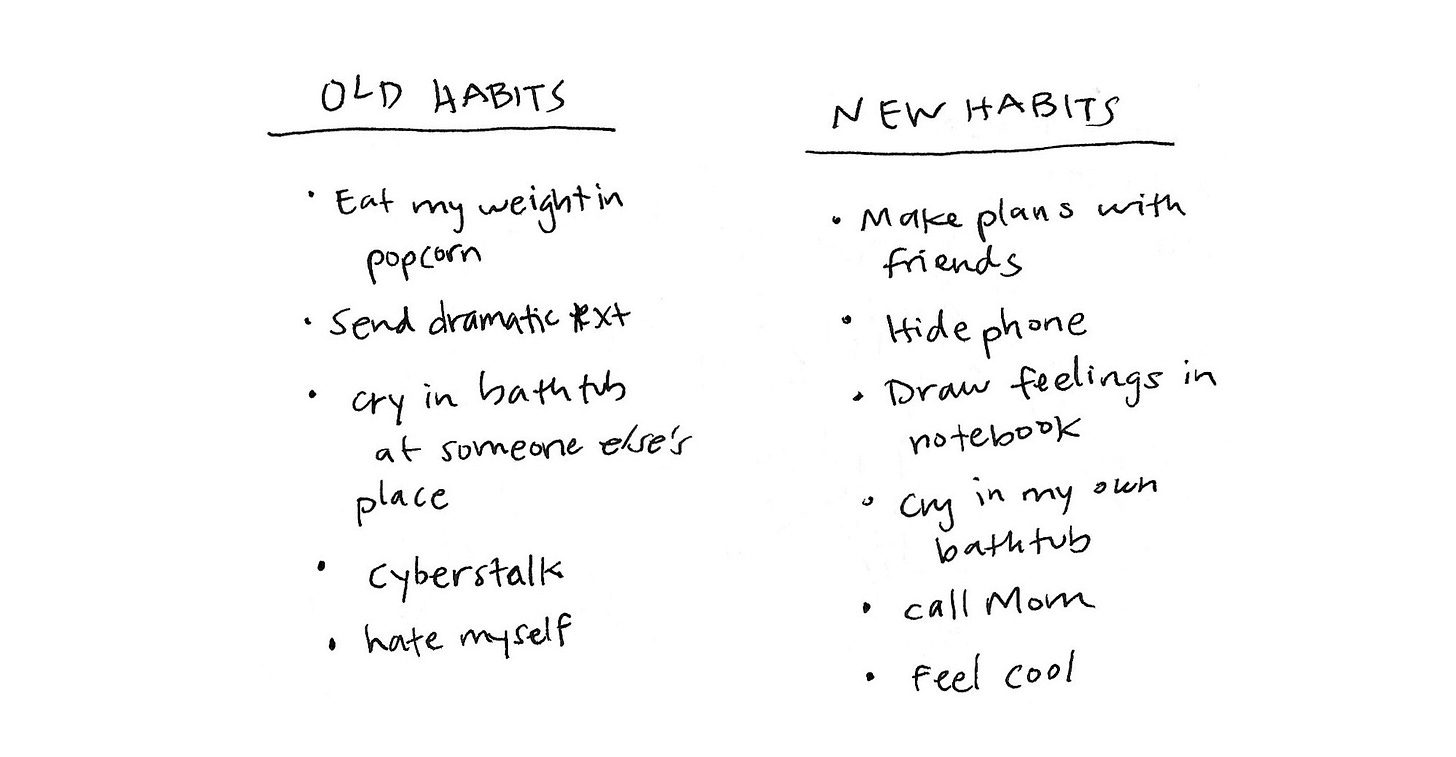 OLD HABITS
• Eat my weight in
popcorn
• Send dramatic text
• cry in bathtub
at someone else's
place
• cyberstalk
• hate myself
NEW HABITS
• Make plans with
friends
• Hide phone
• Draw feelings in
notebook
• Cry in my own
bathtub
• call Mom
• Feel cool